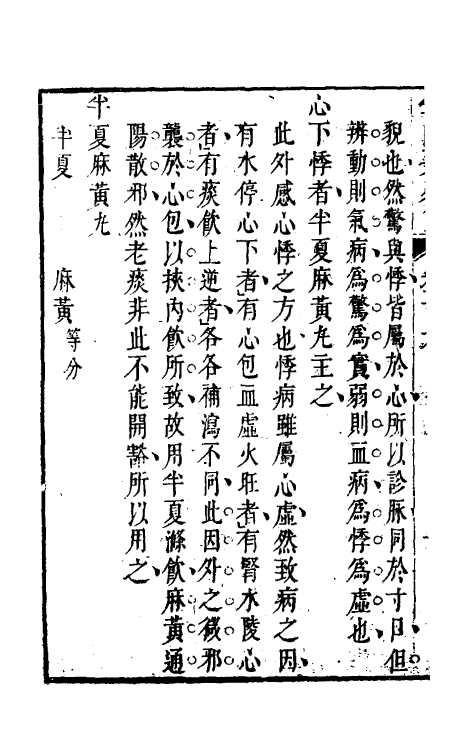 貌也然驚與悸皆屬於心所以診脉同於寸口但
辨動則氣病為驚為實弱則血病為悸為虛也
心下悸者半夏麻黃丸主之
此外感心悸之方也悸病雖屬心虛然致病之因
有水停心下者有心包血虛火旺者有腎水陵心
者有痰飲上逆者各各補瀉不同此因外之微邪
襲於心包以挾內飲所致故用半夏滌飲麻黃通
陽散邪然老痰非此不能開豁所以用之
半夏麻黃丸
半夏 麻黃等分